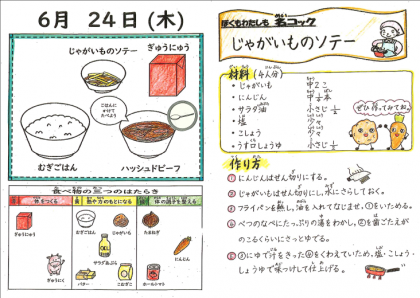 6月 24日(木)
じゃがいものソテー
ぎゅうにゅう
ごはんに
かけて
たべよう
むぎごはん
ハッシュドビーフ
食べ物の三つのはたらき
体をつくる
熱や力のもとになる
体の調子を整える
ぎゅうにゅう
むぎごはん
じゃがいも
たまねぎ
サラダあぶら
にんじん
バター
こむぎこ
ホールトマト
ぼくもわたしも 名コック
じゃがいものソテー
材料(4人分)
・じゃがいも 中2こ
・にんじん 中1/2本
・サラダ油 小さじ1/2
・塩 少々
・こしょう 少々
・うす口しょうゆ 小さじ1/2
ぜひ作ってみてね。
作り方
① にんじんはせん切りにする。
② じゃがいもはせん切りにし、水にさらしておく。
③ フライパンを熱し、油を入れてなじませ、①をいためる。
④ べつのなべにたっぷりの湯をわかし、②を歯ごたえが
のこるくらいにさっとゆでる。
⑤ ③にゆで汁をきった④をくわえていため、塩・こしょう・
しょうゆで味つけして仕上げる。